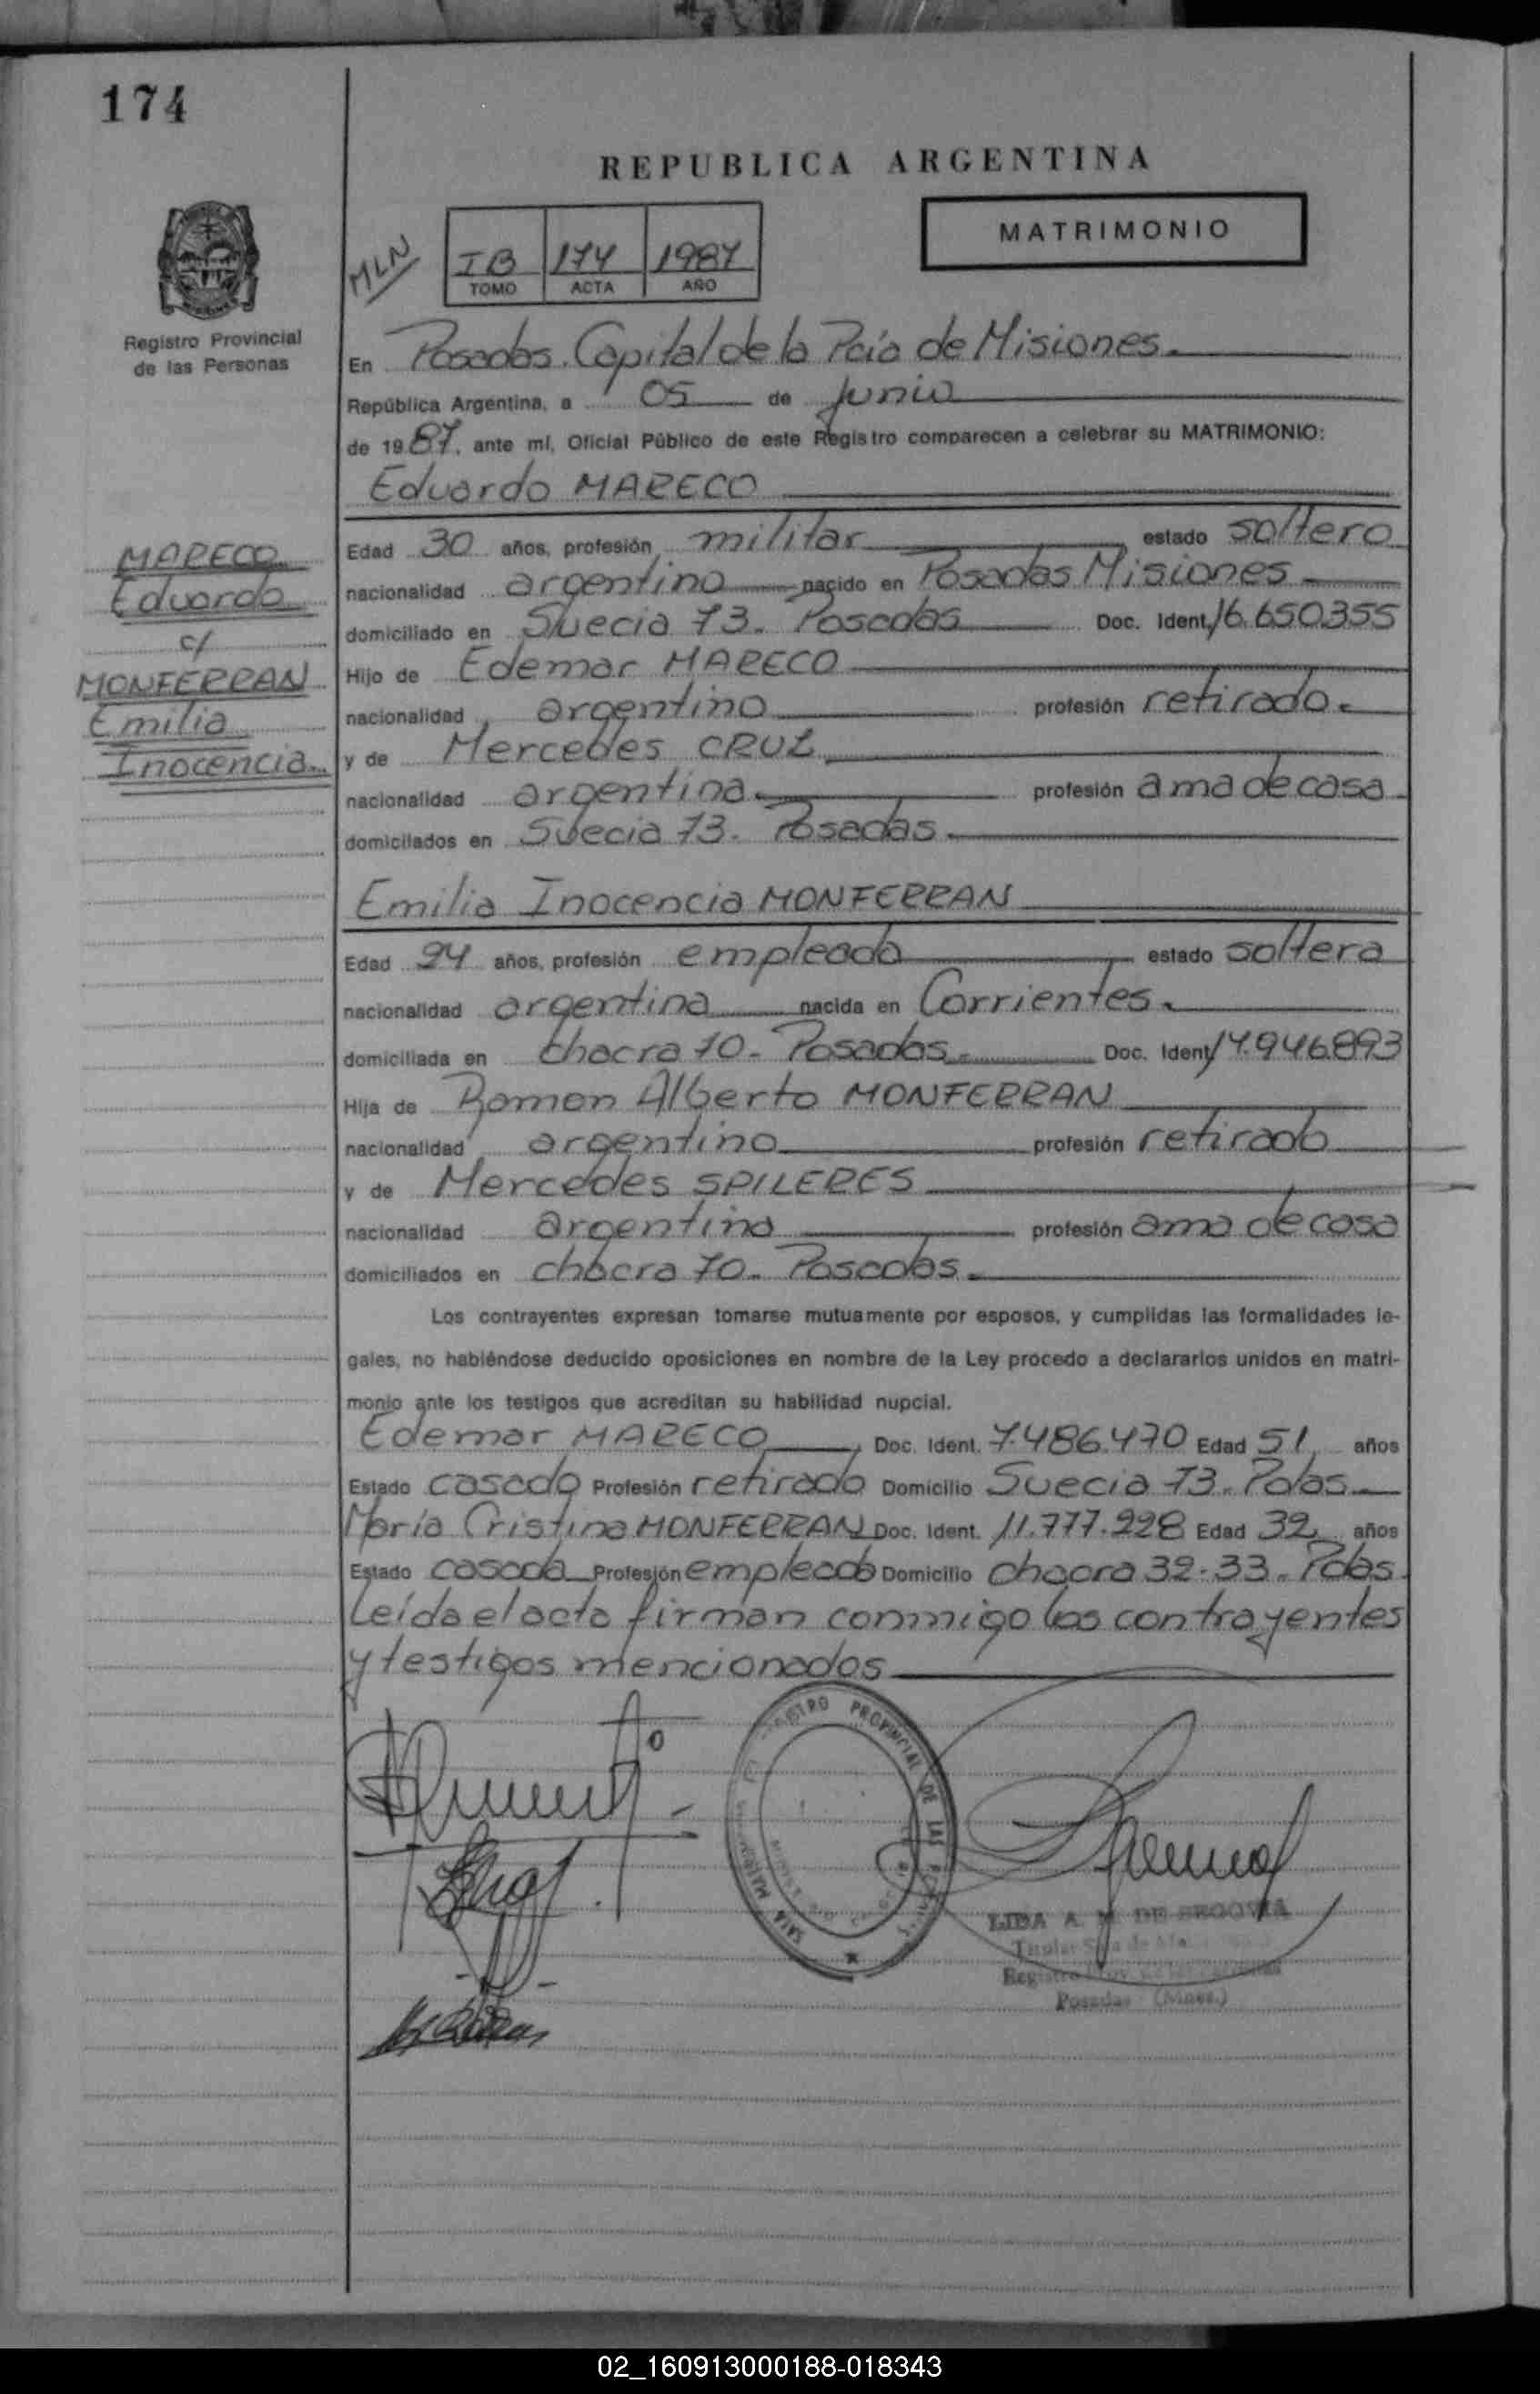 174
REPUBLICA ARGENTINA
MATRIMONIO
MLN
IB 174 1987
TOMO ACTA AÑO
Registro Provincial
de las Personas
En Posadas. Capital de la Pcia de Misiones.
República Argentina, a 05 de Junio
de 1987, ante mí, Oficial Público de este Registro comparecen a celebrar su MATRIMONIO:
Eduardo MARECO
MARECO
Eduardo
c/
MONFERRAN
Emilia
Inocencia
Edad 30 años, profesión militar estado soltero
nacionalidad argentino nacido en Posadas Misiones
domiciliado en Suecia 73. Posadas Doc. Ident. 16.650355
Hijo de Edemar MARECO
nacionalidad argentino profesión retirado.
y de Mercedes CRUZ
nacionalidad argentina. profesión ama de casa
domicilados en Suecia 73. Posadas.
Emilia Inocencia MONFERRAN
Edad 24 años, profesión empleada estado soltera
nacionalidad argentina nacida en Corrientes.
domiciliada en chacra 70. Posadas. Doc. Ident 17.946893
Hija de Ramon Alberto MONFERRAN
nacionalidad argentino profesión retirado
y de Mercedes SPILERES
nacionalidad argentina profesión ama de casa
domiciliados en chacra 70. Posadas.
Los contrayentes expresan tomarse mutuamente por esposos, y cumplidas las formalidades le-
gales, no habiéndose deducido oposiciones en nombre de la Ley procedo a declararlos unidos en matri-
monio ante los testigos que acreditan su habilidad nupcial.
Edemar MARECO, Doc. Ident. 7.486.470 Edad 51 años
Estado casado Profesión retirado Domicilio Suecia 73. Pdas.
María Cristina MONFERRAN Doc. Ident. 11.777.228 Edad 32 años
Estado casada Profesión empleada Domicilio chacra 32-33. Pdas.
Leída el acta firman conmigo los contrayentes
y testigos mencionados
REGISTRO PROVINCIAL DE LAS
SALA
LIDA A. M DE SEGOVIA
Titular
Registro
Posadas (Mnes.)
02_160913000188-018343